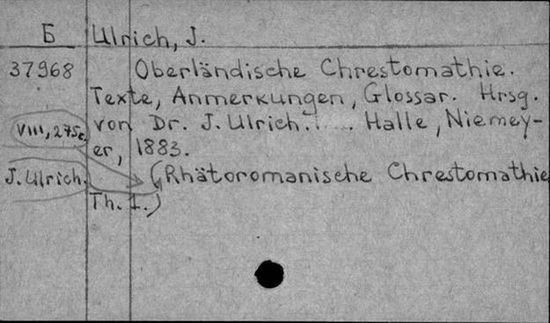 Б Ulrich, J.
37968 Oberländische Chrestomathie.
Texte, Anmerkungen, Glossar. Hrsg.
VIII, 275c von Dr. J. Ulrich. Halle, Niemey-
er, 1883.
J. Ulrich. (Rhätoromanische Chrestomathie
Th. I.)